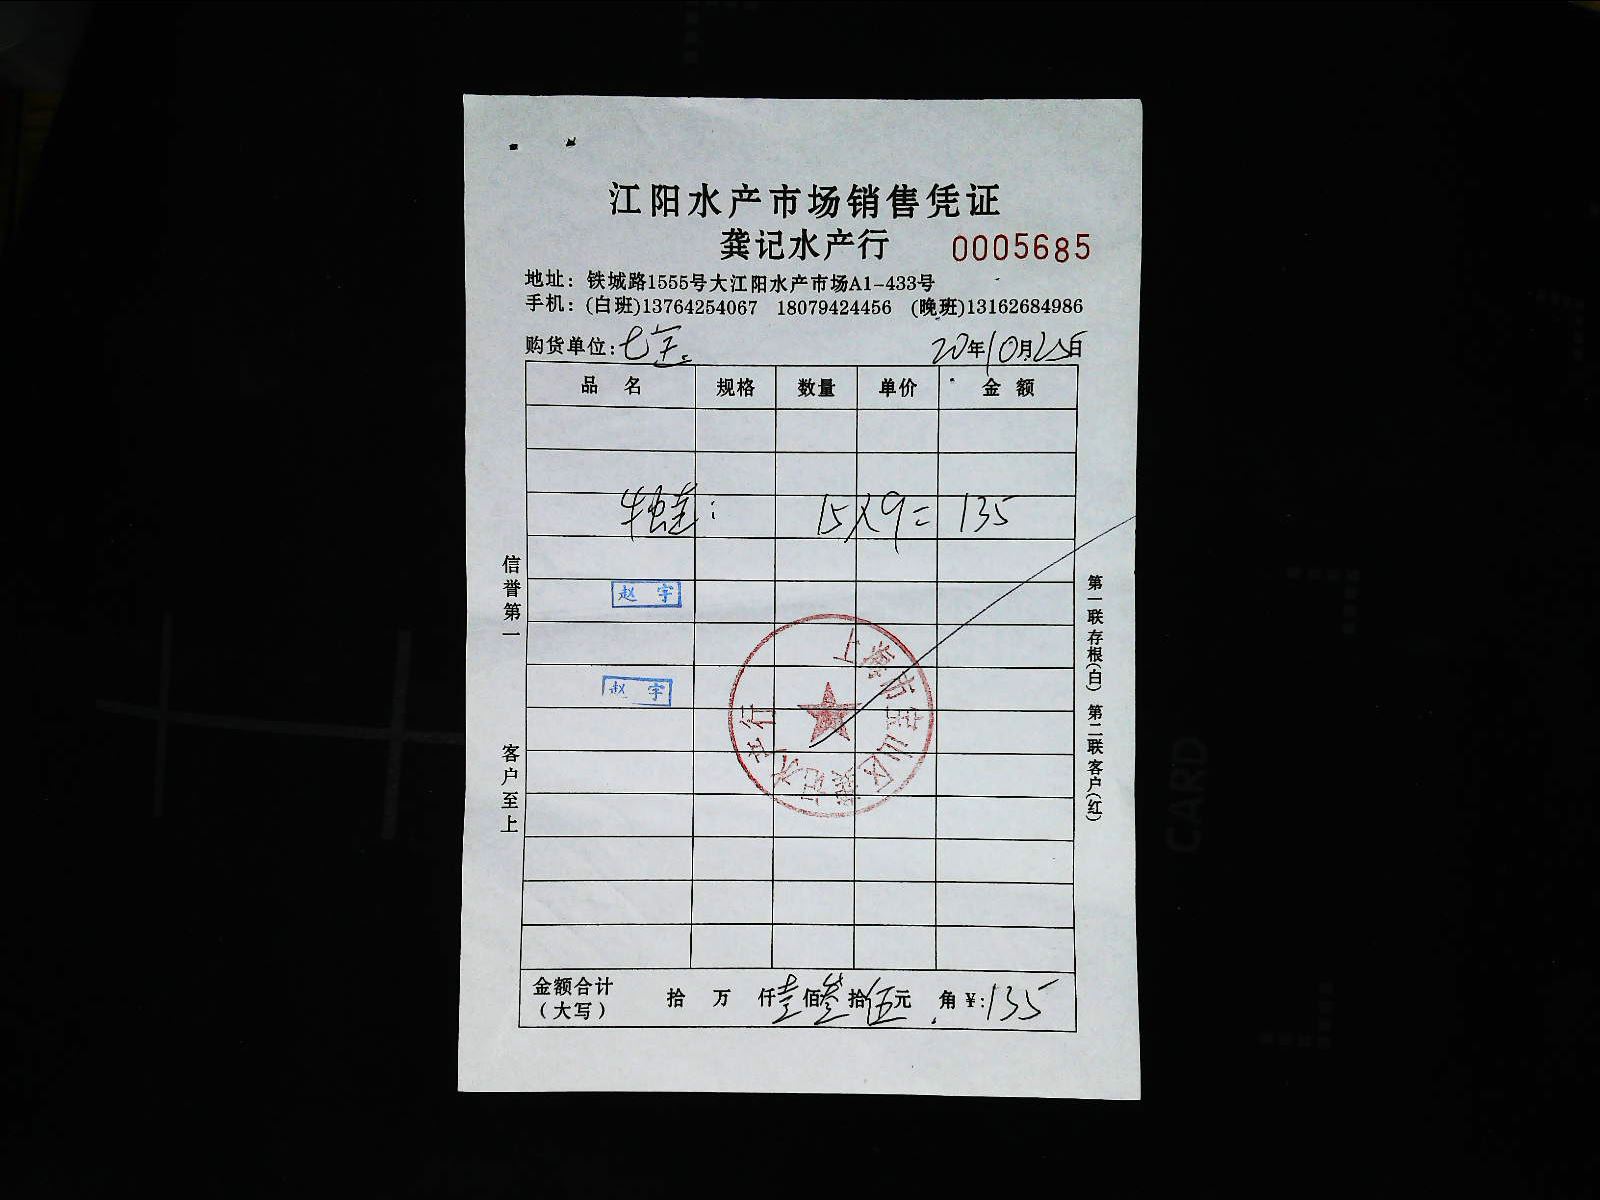 江阳水产市场销售凭证
龚记水产行 0005685
地址：铁城路1555号大江阳水产市场A1-433号
手机：(白班)13764254067 18079424456 (晚班)13162684986
购货单位：七宝 20年10月25日
品名 规格 数量 单价 金额
牛蛙： 15×9= 135
赵宇
赵宇
上海市宝山区龚记水产行
信誉第一 客户至上
第一联存根(白) 第二联客户(红)
金额合计（大写） 拾 万 仟壹佰叁拾伍元 角 ¥:135
CARD